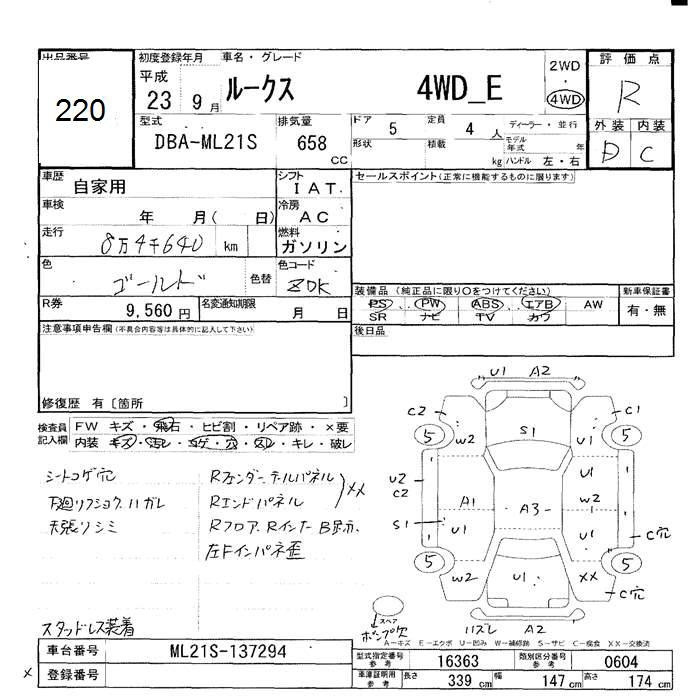 出品番号
220
初度登録年月 車名・グレード
平成 23 9月
ルークス 4WD_E
2WD
・
4WD
評価点
R
外装 内装
D C
型式
DBA-ML21S
排気量
658
CC
ドア 5
定員 4 人
ディーラー・並行
形状 積載 kg
モデル年式 年
ハンドル 左・右
車歴
自家用
シフト
IAT.
車検
年 月( 日)
冷房
AC
走行
8万4千640 km
燃料
ガソリン
色
ゴールド
色替
色コード
ZDK
R券
9,560 円
名変通知期限
月 日
セールスポイント(正常に機能するものに限ります)
装備品(純正品に限り○をつけてください)
PS PW ABS エアB AW
SR ナビ TV カワ
新車保証書
有・無
後日品
注意事項申告欄(不具合内容等は具体的に記入して下さい)
修復歴 有〔箇所
検査員記入欄
FW キズ・飛石・ヒビ割・リペア跡・×要
内装 キズ・汚レ・コゲ・穴・スレ・キレ・破レ
シートコゲ穴
下廻リフショク.ハガレ
天張リシミ
Rフェンダー.テールパネル
Rエンドパネル
××
Rフロア.Rインナー
左Fインパネ歪
スタッドレス装着
U1 A2
C2 C1
5 5
W2 S1 U1
U2
C2
U1
A1 A3 W2
S1 U1 U1
C穴
5 5
W2 U1 ××
C穴
スペア
ハズレ A2
A-キズ E-エクボ U-凹み W-補修跡 S-サビ C-腐食 XX-交換済
車台番号
ML21S-137294
登録番号
×
型式指定番号
参考
16363
類別区分番号
参考
0604
車庫証明用
参考
長さ 339 cm
幅 147 cm
高さ 174 cm